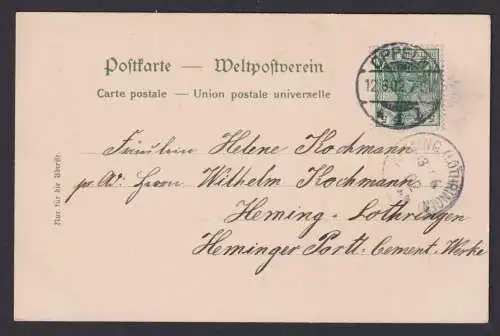 Postkarte — Weltpostverein
Carte postale — Union postale universelle
OPPELN
12.9.02.
Fräulein Helene Kochmann
pr. Ad. Herrn Wilhelm Kochmann
Heming-Lothringen
Heminger Portl.-Cement-Werke
HEMING (LOTHRINGEN)
Nur für die Adresse